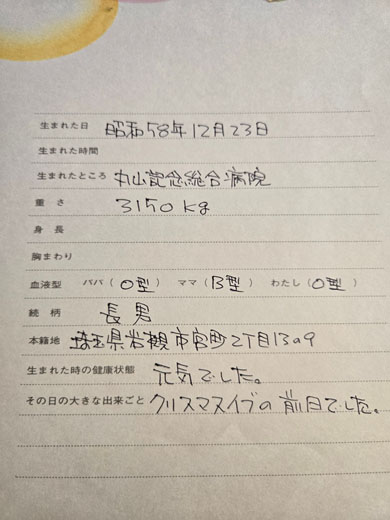 生まれた日 昭和58年12月23日
生まれた時間
生まれたところ 丸山記念総合病院
重さ 3150kg
身長
胸まわり
血液型 パパ(O型) ママ(B型) わたし(O型)
続柄 長男
本籍地 埼玉県岩槻市宮町2丁目13の9
生まれた時の健康状態 元気でした。
その日の大きな出来ごと クリスマスイブの前日でした。